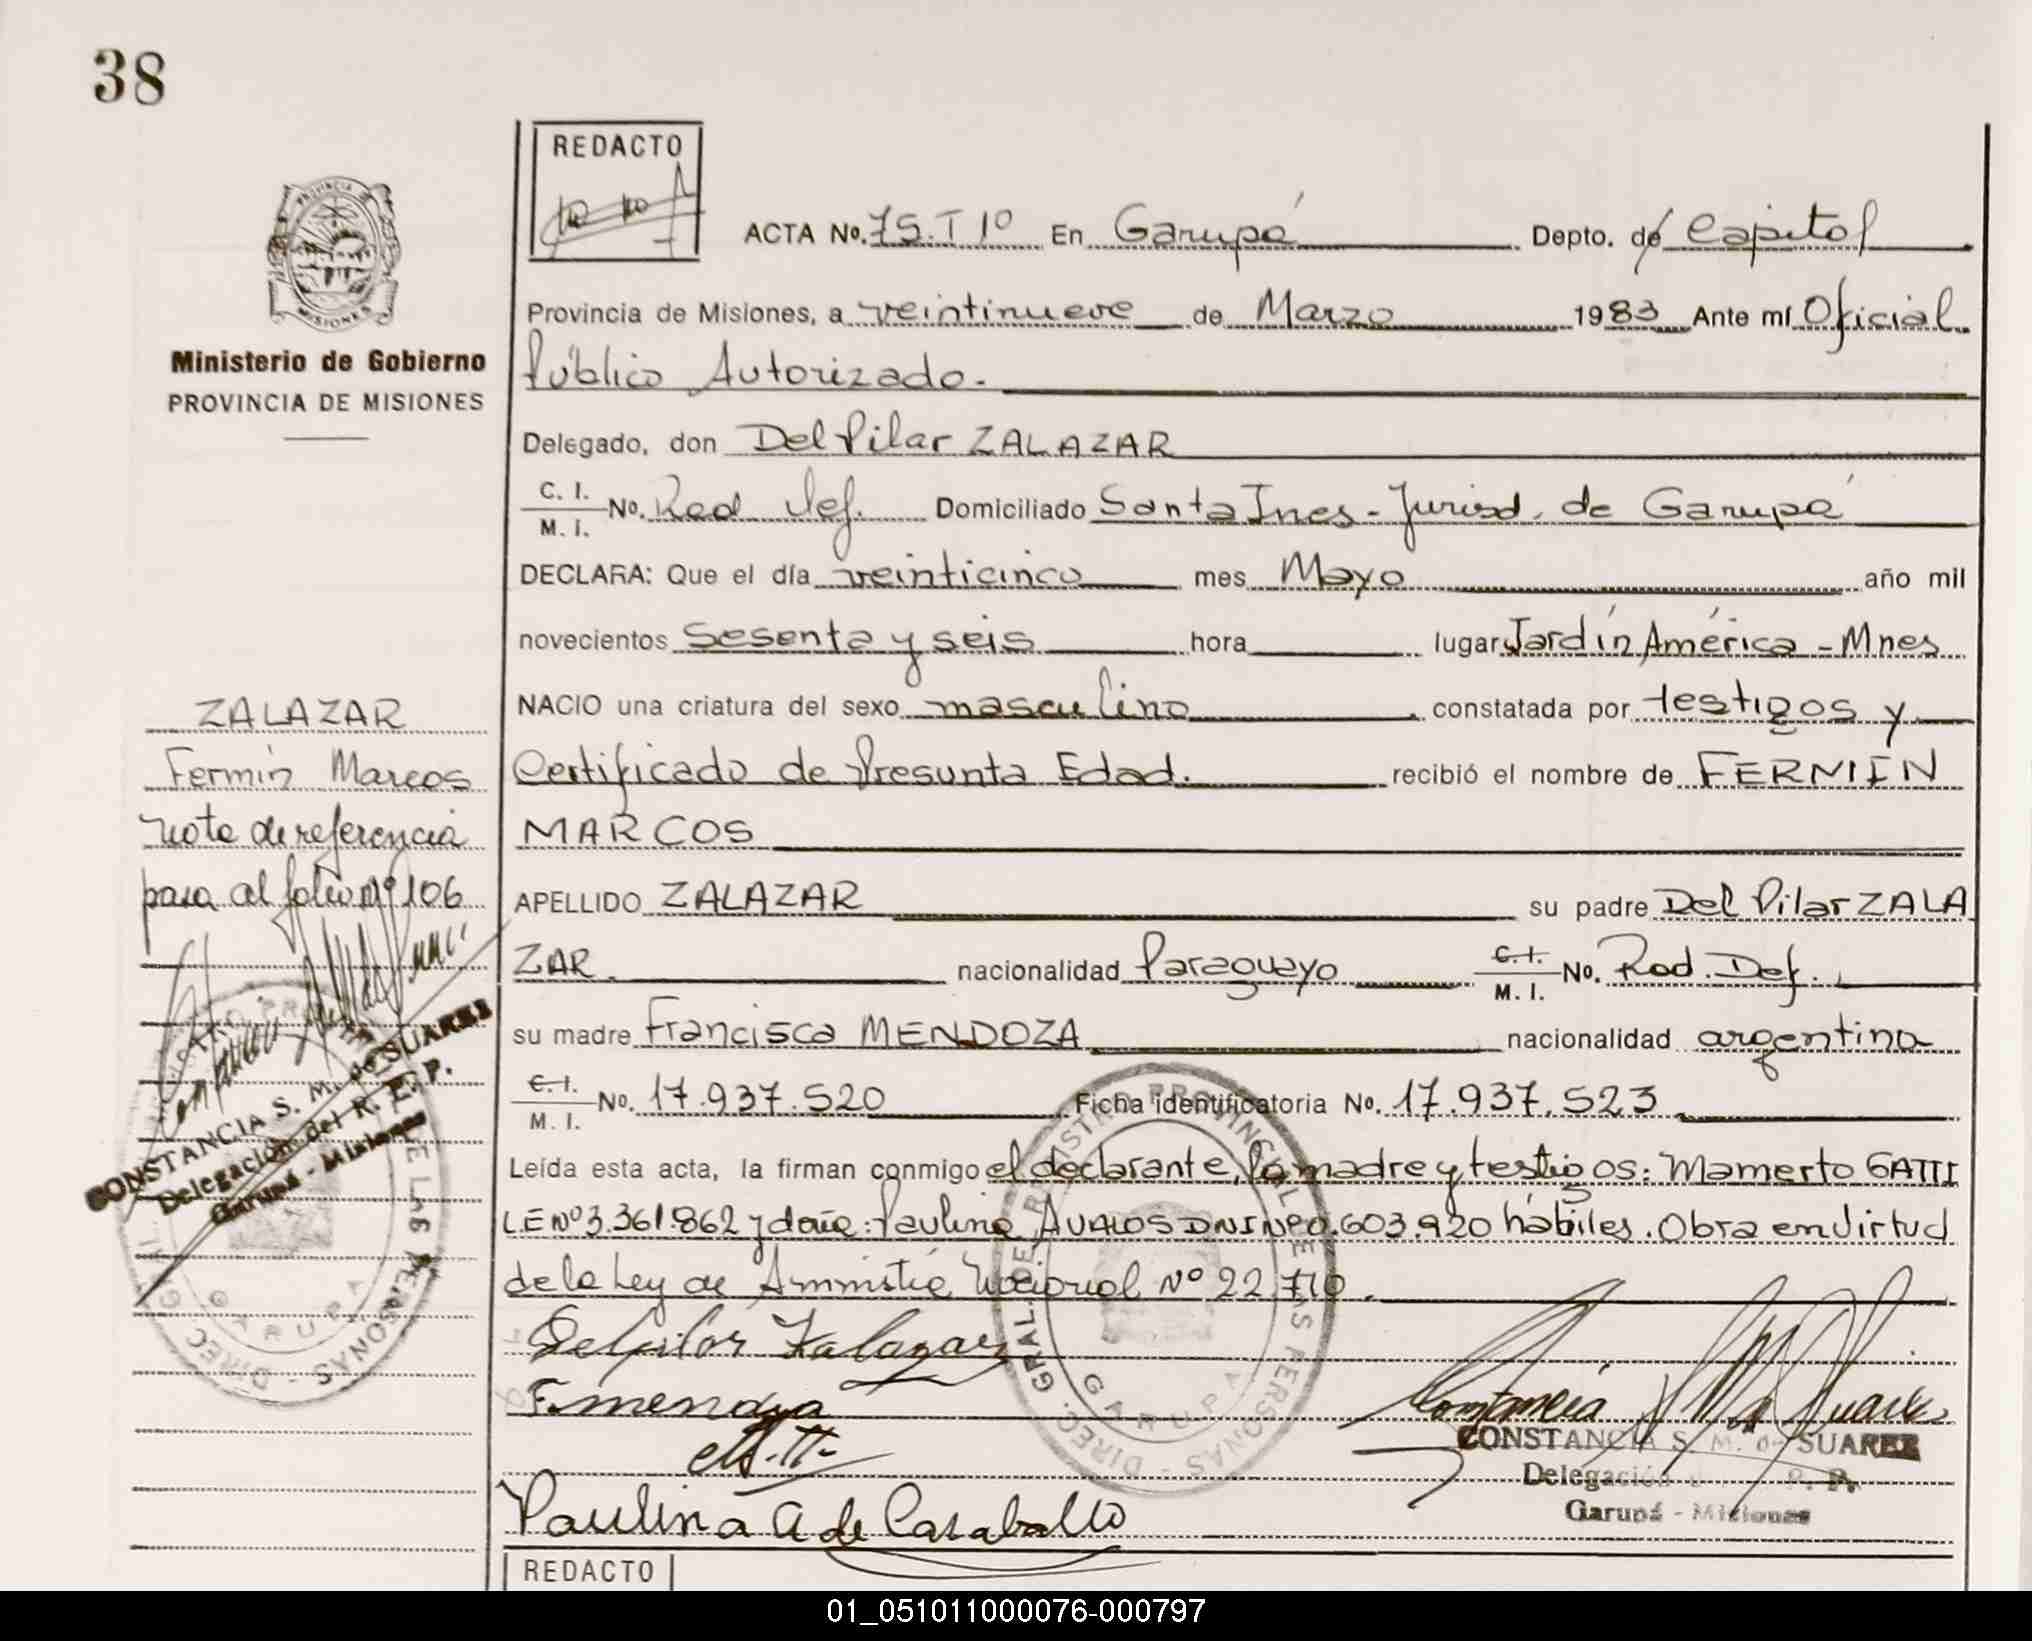 38
REDACTO
PROVINCIA DE
MISIONES
Ministerio de Gobierno
PROVINCIA DE MISIONES
ACTA No. 75.T 1º En Garupá Depto. de Capital
Provincia de Misiones, a veintinueve de Marzo 1983 Ante mí Oficial
Público Autorizado.
Delegado, don Del Pilar ZALAZAR
C. I. M. I. No. Rad. Def. Domiciliado Santa Ines - Jurisd. de Garupá
DECLARA: Que el día veinticinco mes Mayo año mil
novecientos sesenta y seis hora lugar Jardín América - Mnes
NACIO una criatura del sexo masculino constatada por testigos y
Certificado de Presunta Edad. recibió el nombre de FERMIN
MARCOS
APELLIDO ZALAZAR su padre Del Pilar ZALA
ZAR. nacionalidad Paraguayo C. I. M. I. No. Rad. Def.
su madre Francisca MENDOZA nacionalidad argentina
C. I. M. I. No. 17.937.520 Ficha identificatoria No. 17.937.523
Leída esta acta, la firman conmigo el declarante, la madre y testigos: Mamerto GATTI
L.E Nº 3.361.862 y doña: Paulina AVALOS DNI Nº 0.603.920 hábiles. Obra en Virtud
de la Ley de Amnistía Nacional Nº 22.710.
Delpilar Zalazar
F. mendoza
Paulina A de Caraballo
Constancia S M de Suarez
CONSTANCIA S. M. de SUAREZ
Delegación P. P.
Garupá - Misiones
DIREC. GRAL. DE REGISTRO PROVINCIAL DE LAS PERSONAS
GARUPA
ZALAZAR
Fermín Marcos
Nota de referencia
pasa al folio Nº 106
CONSTANCIA S. M. de SUAREZ
Delegación del R. P. P.
Garupá - Misiones
GARUPA
REDACTO
01_051011000076-000797